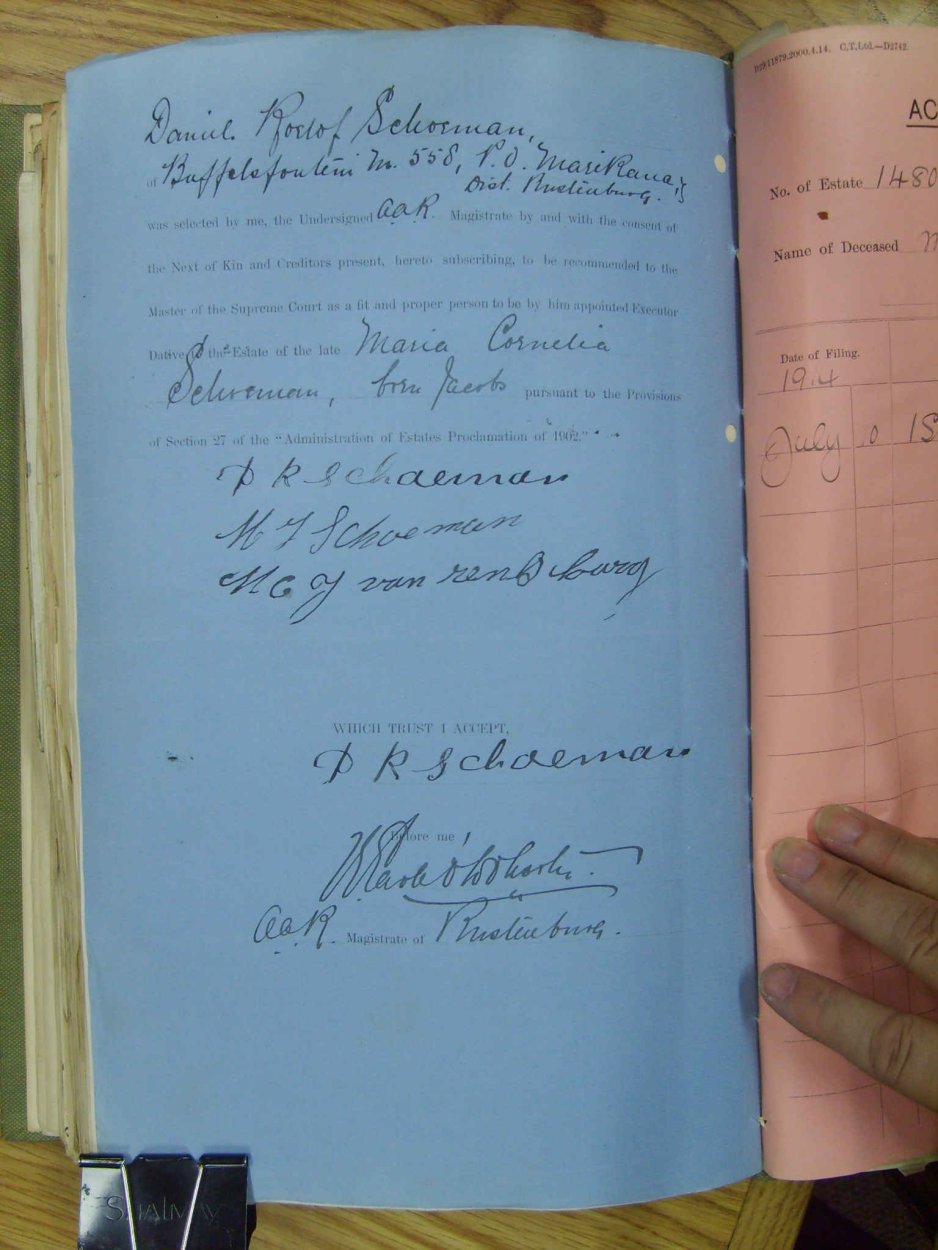 Daniel Roelof Schoeman,
of Buffelsfontein No. 558, P.O. Marikana,
Dist. Rustenburg.
was selected by me, the Undersigned A.R. Magistrate by and with the consent of
the Next of Kin and Creditors present, hereto subscribing, to be recommended to the
Master of the Supreme Court as a fit and proper person to be by him appointed Executor
Dative to the Estate of the late Maria Cornelia
Schoeman, born Jacobs pursuant to the Provisions
of Section 27 of the "Administration of Estates Proclamation of 1902."
D R Schoeman
M J Schoeman
M C J van rensburg
WHICH TRUST I ACCEPT,
D R Schoeman
Before me
A.R. Magistrate of Rustenburg.
D29/11879.2000.4.14. C.T.Ltd.—D2742.
AC
No. of Estate 1480
Name of Deceased M
Date of Filing.
1914
July
SHALMAX